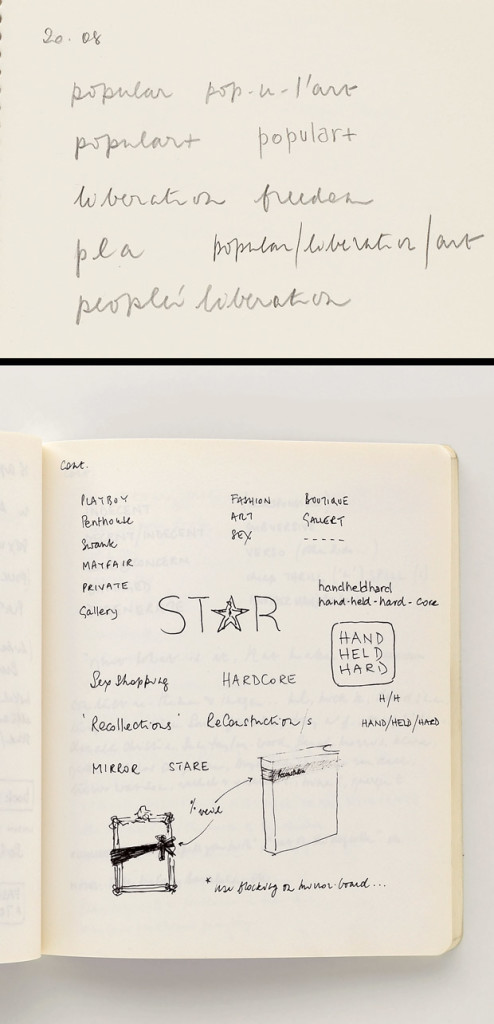 20.08
popular pop-u-l'art
populart popular+
liberation freedom
pla popular/liberation/art
people's liberation
Cont.
PLAYBOY
Penthouse
Swank
MAYFAIR
PRIVATE
Gallery
FASHION BOUTIQUE
ART GALLERY
SEX -----
handheldhard
hand-held-hard-core
STAR
HAND
HELD
HARD
Sex Shopping HARDCORE
H/H
'Recollections' ReConstruction/s HAND/HELD/HARD
MIRROR STARE
* use flocking on mirror board...